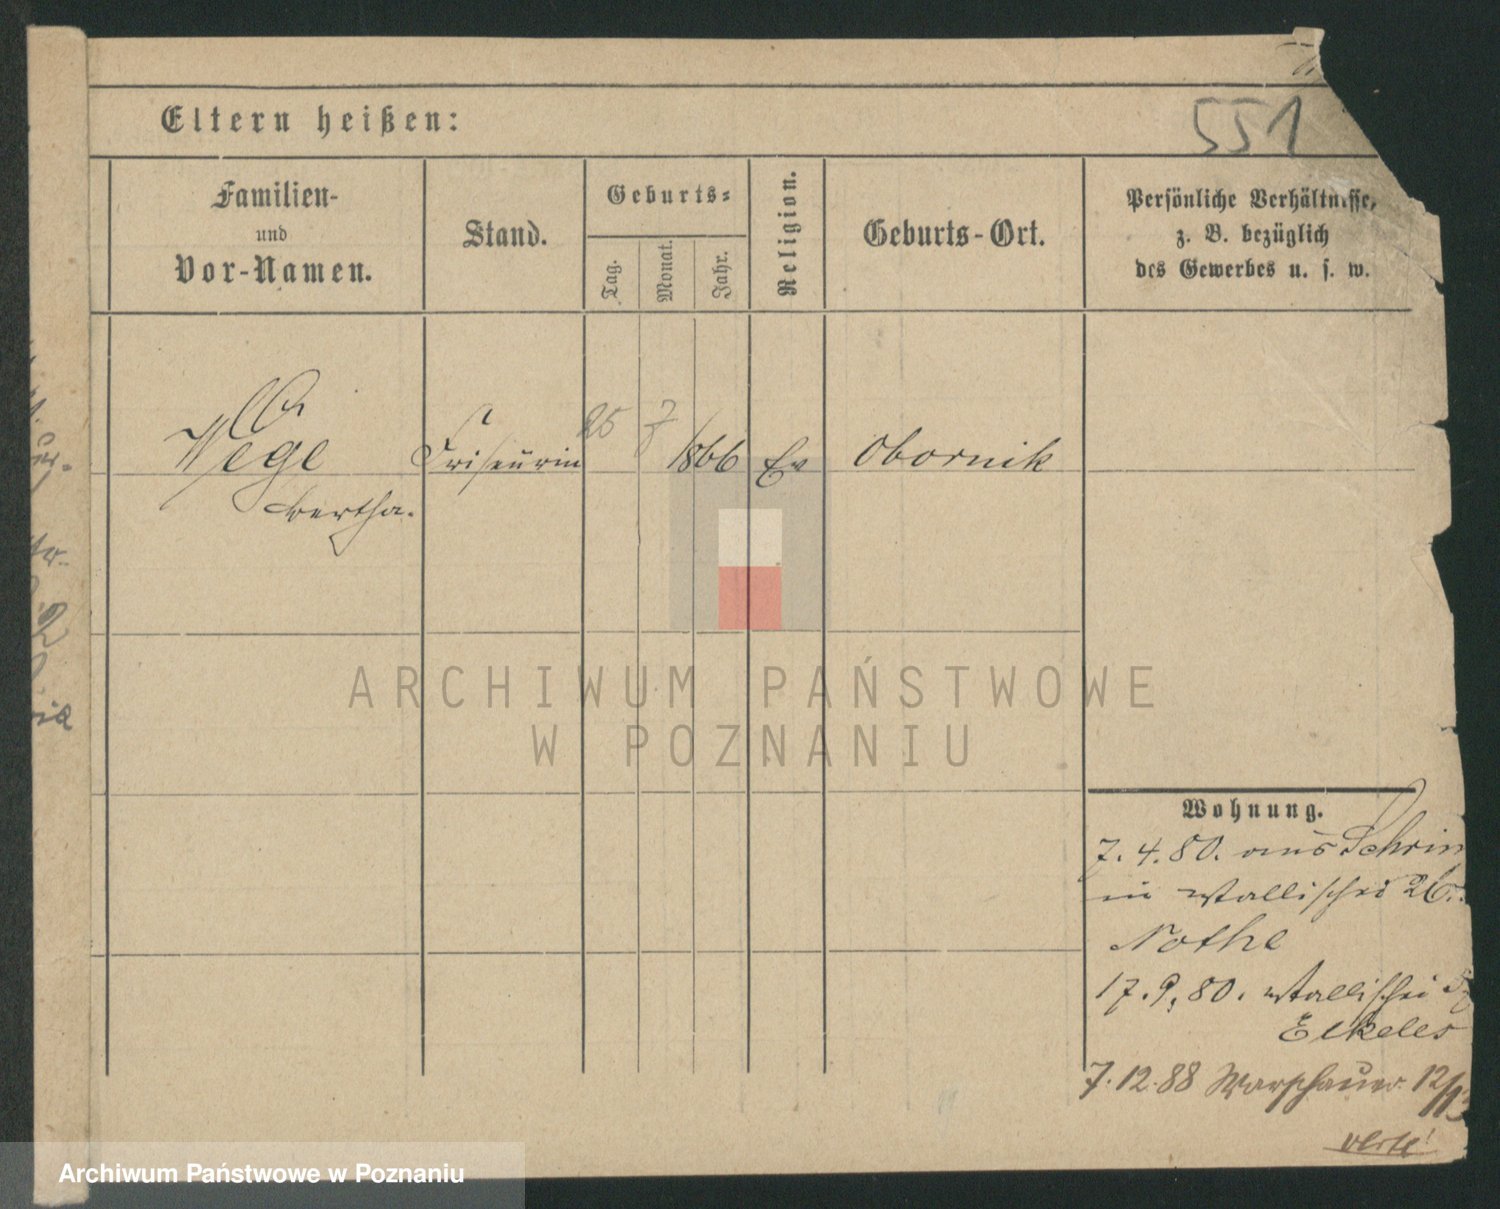 551
Eltern heißen:
Familien-
und
Vor-Namen.
Stand.
Geburts-
Tag.
Monat.
Jahr.
Religion.
Geburts-Ort.
Persönliche Verhältnisse,
z. B. bezüglich
des Gewerbes u. s. w.
Wege Friseurin 25 7 1866 Ev Obornik
Bertha.
Wohnung.
7. 4. 80. aus Schrim
in Wallischei 26.
Nothe
17. 9. 80. Wallischei
Elkeles
7. 12. 88 Warschauer 12/13
verte!
ARCHIWUM PAŃSTWOWE
W POZNANIU
Archiwum Państwowe w Poznaniu